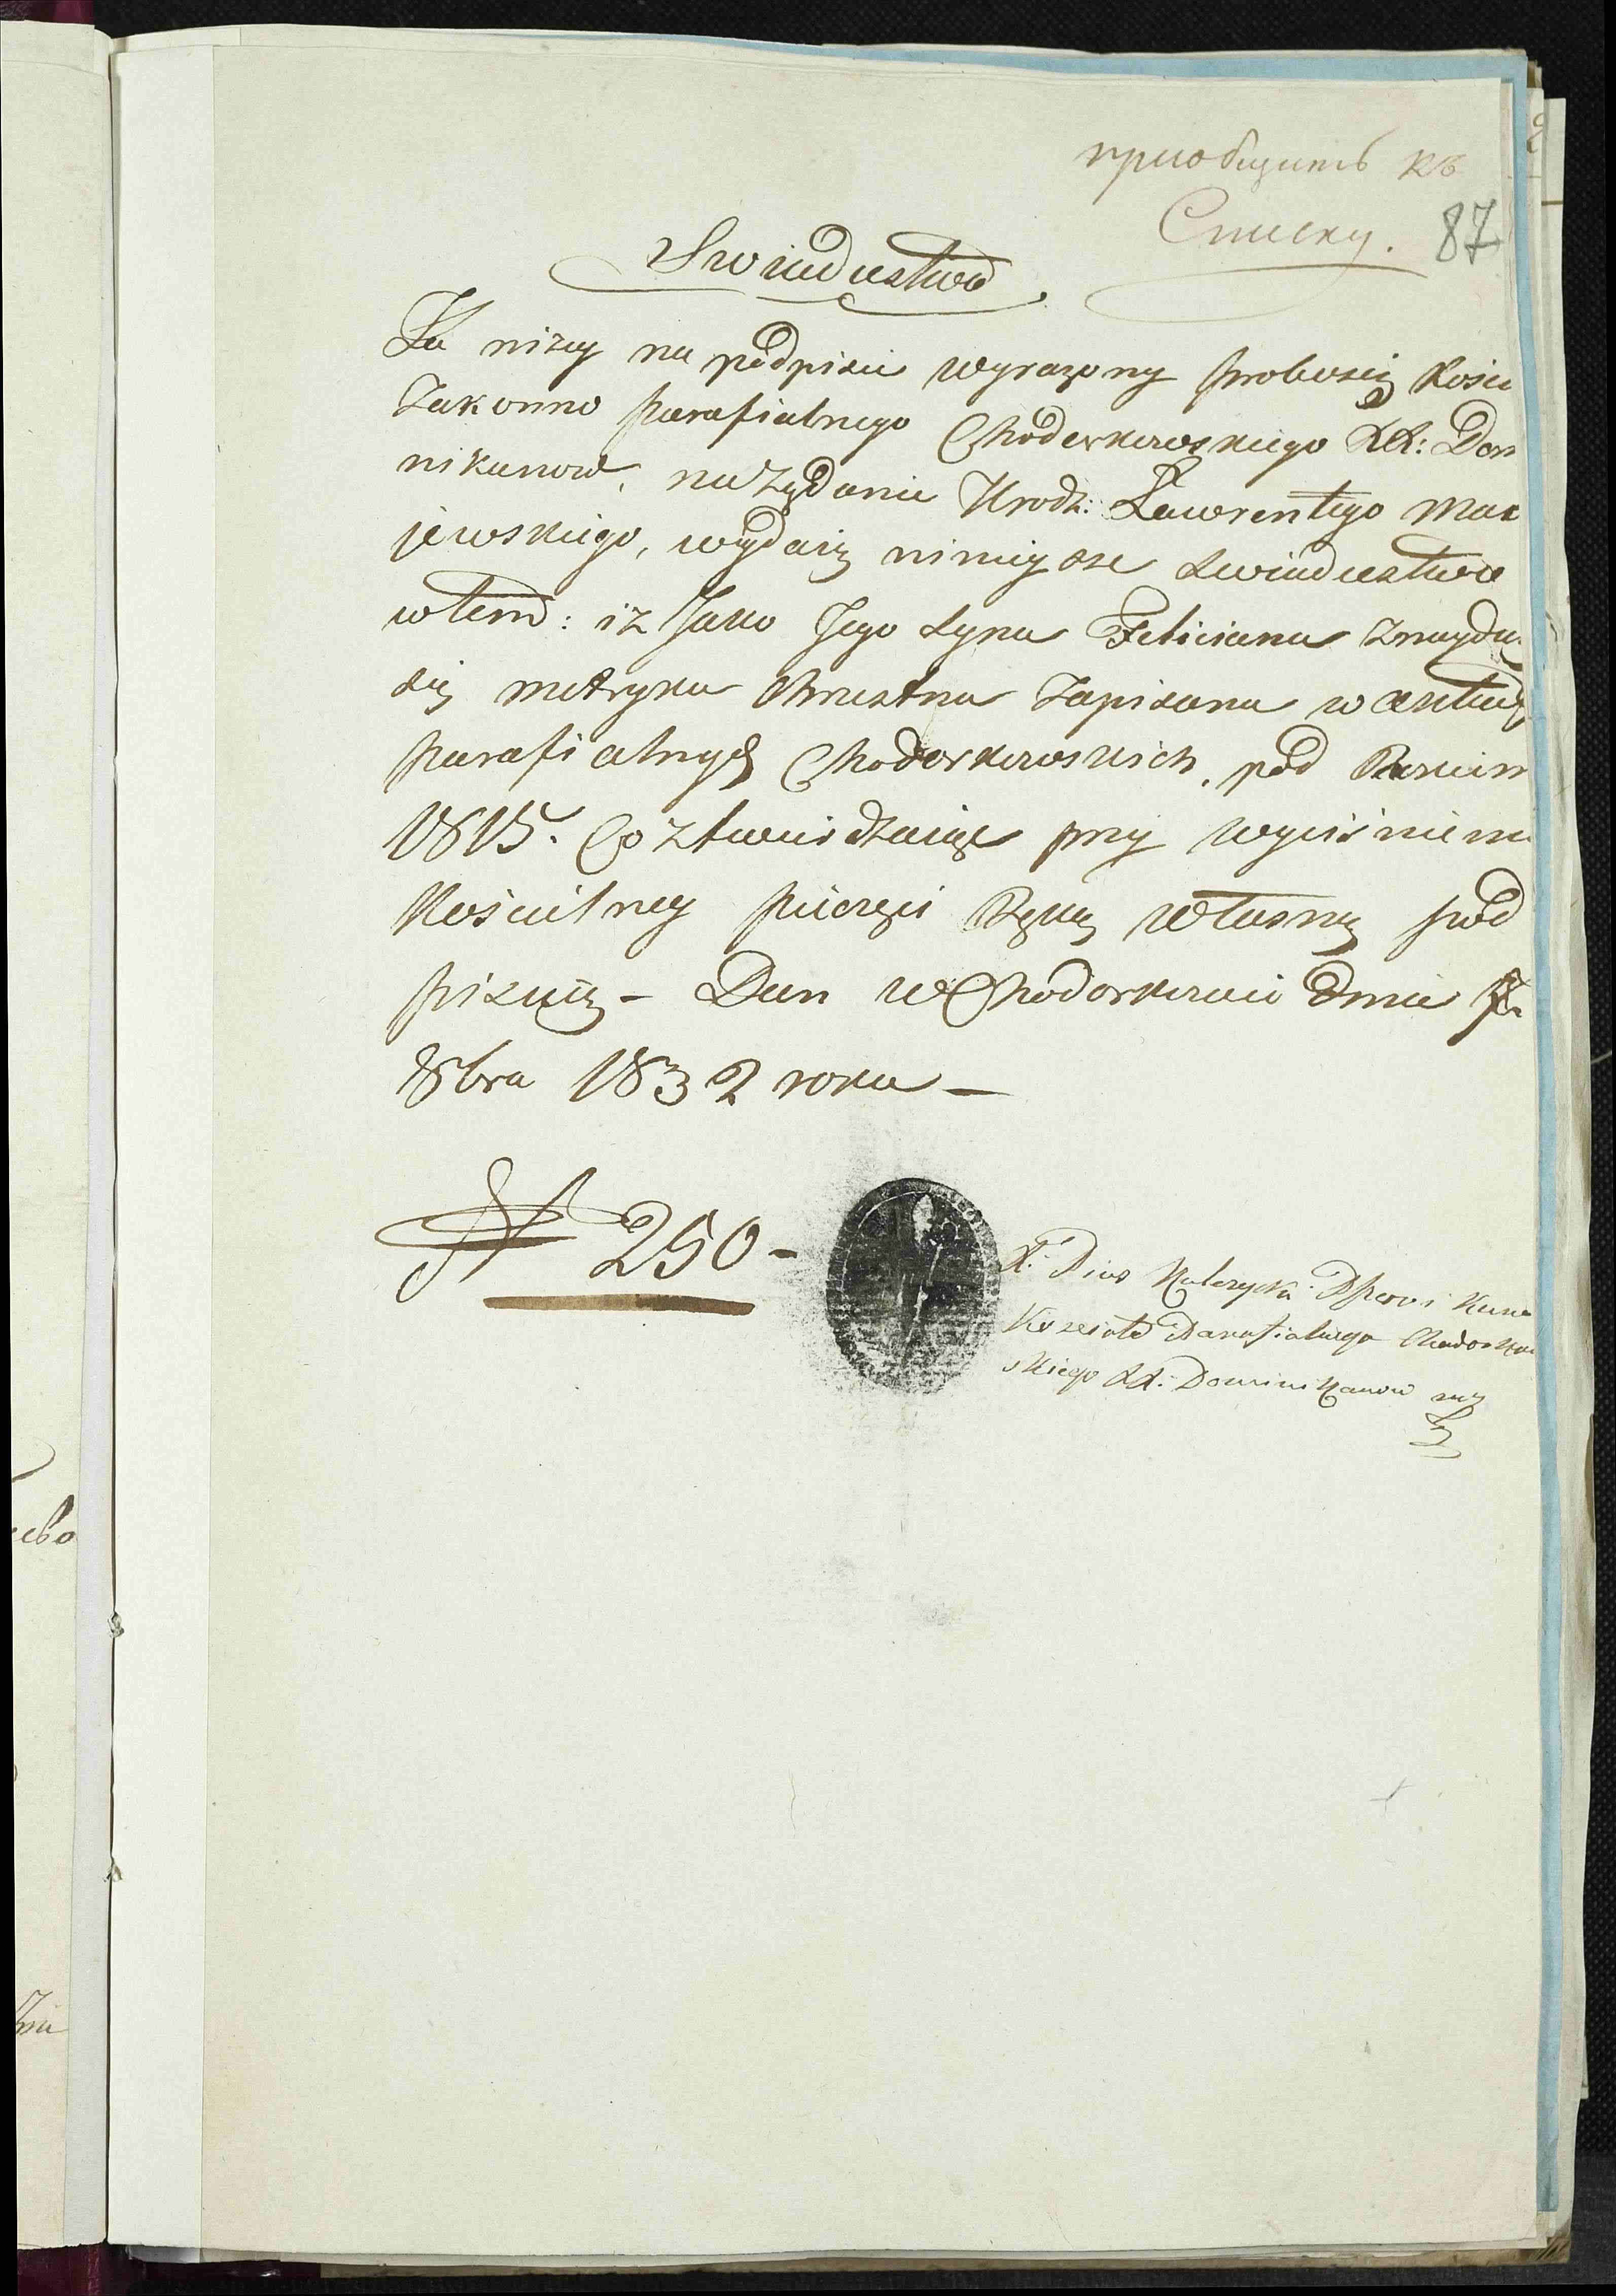 пріобщить къ
Списку. 87
Swiadectwo
Ja niżey na podpisie wyrażony Proboszcz Kości
Zakonno Parafialnego Chodorkowskiego XX: Dom
nikanow, na żądanie Urodz: Lawrentego Mac
jewskiego, wydaię ninieysze swiadectwo
w tem: iż Jako Jego syna Feliciana znaydu
się metryka Chrestna zapisana w aktach
Parafialnych Chodorkowskich, pod Rokiem
1815. Co ztwierdzaiąc przy wyciśnieni
Kościelney Pieczęci Ręką własną pod
pisuię - Dan w Chodorkowie dnia
8bra 1832 roku -
N 250 -
X: Pius
Koscioła Parafialnego Chodorkow
skiego XX: Dominikanow mp
ево